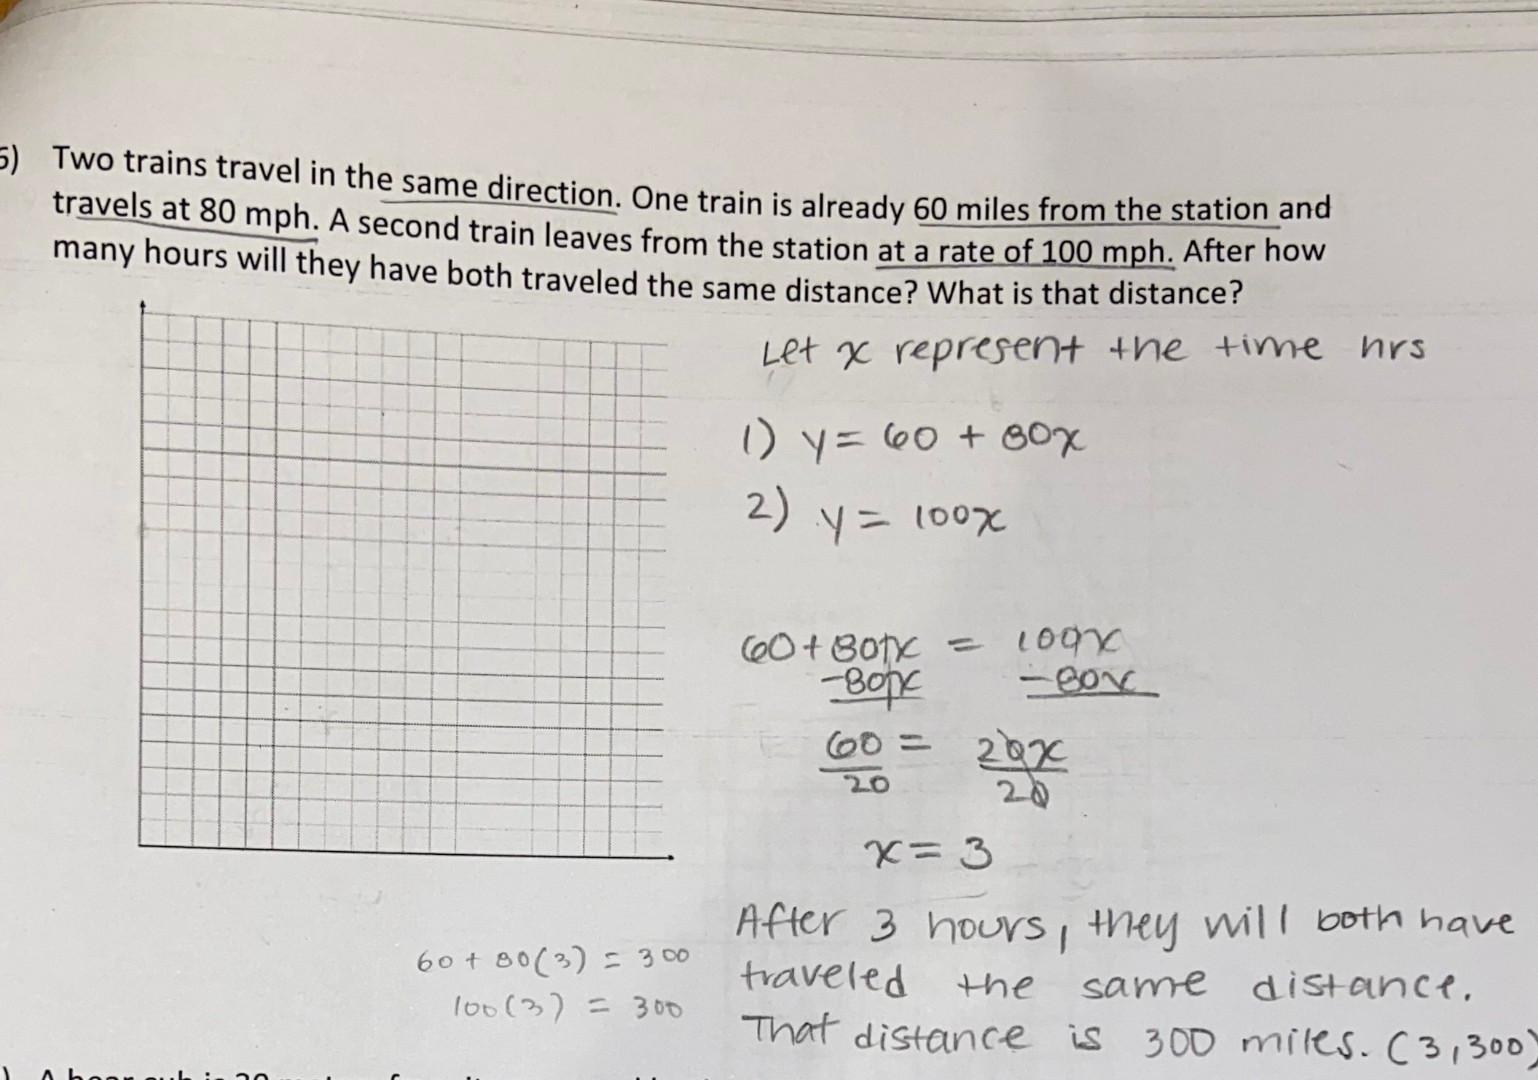 5) Two trains travel in the same direction. One train is already 60 miles from the station and
travels at 80 mph. A second train leaves from the station at a rate of 100 mph. After how
many hours will they have both traveled the same distance? What is that distance?
Let x represent the time hrs
1) y = 60 + 80x
2) y = 100x
60 + 80x = 100x
-80x -80x
60 = 20x
20 20
x = 3
After 3 hours, they will both have
traveled the same distance.
That distance is 300 miles. (3,300)
60 + 80(3) = 300
100(3) = 300